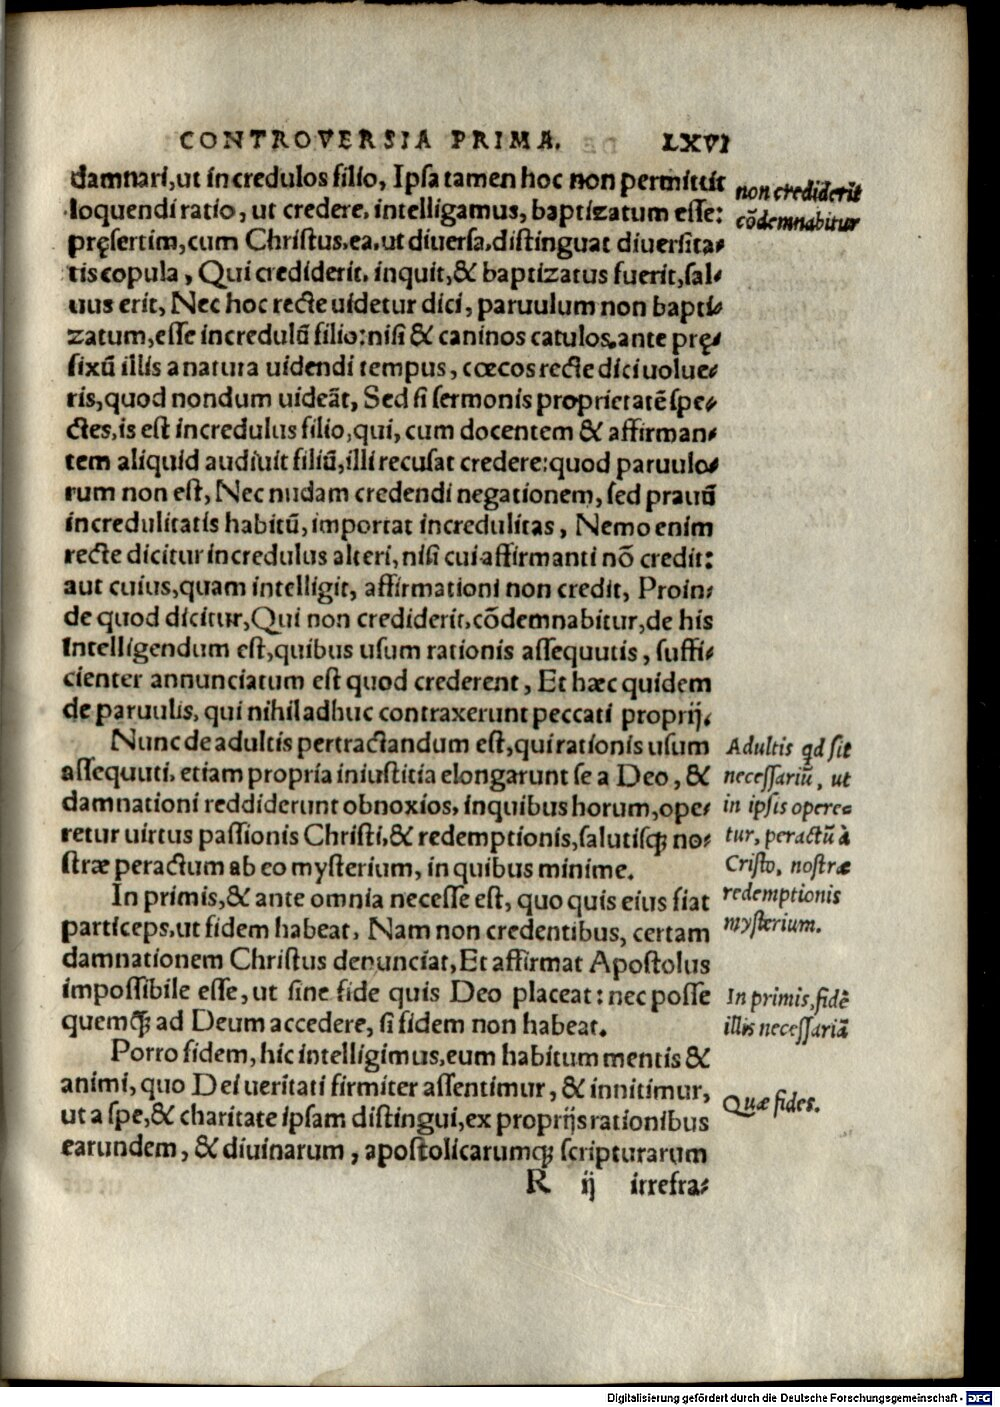 CONTROVERSIA PRIMA. LXVI
damnari,ut incredulos filio, Ipsa tamen hoc non permittit
loquendi ratio, ut credere, intelligamus, baptizatum esse:
pręsertim,cum Christus,ea,ut diuersa,distinguat diuersita-
tis copula, Qui crediderit, inquit,& baptizatus fuerit,sal-
uus erit, Nec hoc recte uidetur dici, paruulum non bapti-
zatum,esse incredulū filio:nisi & caninos catulos,ante prę-
fixū illis a natura uidendi tempus, cœcos recte dici uolue-
ris,quod nondum uideāt, Sed si sermonis proprietatē spe-
ctes,is est incredulus filio,qui, cum docentem & affirman-
tem aliquid audiuit filiū,illi recusat credere:quod paruulo-
rum non est, Nec nudam credendi negationem, sed prauū
incredulitatis habitū,importat incredulitas, Nemo enim
recte dicitur incredulus alteri, nisi cui affirmanti nō credit:
aut cuius,quam intelligit, affirmationi non credit, Proin-
de quod dicitur,Qui non crediderit,cōdemnabitur,de his
Intelligendum est,quibus usum rationis assequutis, suffi-
cienter annunciatum est quod crederent, Et hæc quidem
de paruulis, qui nihil adhuc contraxerunt peccati proprij.
Nunc de adultis pertractandum est,qui rationis usum
assequuti, etiam propria iniustitia elongarunt se a Deo, &
damnationi reddiderunt obnoxios, in quibus horum,ope-
retur uirtus passionis Christi,& redemptionis,salutisq; no-
stræ peractum ab eo mysterium, in quibus minime.
In primis,& ante omnia necesse est, quo quis eius fiat
particeps,ut fidem habeat, Nam non credentibus, certam
damnationem Christus denunciat,Et affirmat Apostolus
impossibile esse, ut sine fide quis Deo placeat: nec posse
quemq; ad Deum accedere, si fidem non habeat.
Porro fidem, hic intelligimus,eum habitum mentis &
animi, quo Dei ueritati firmiter assentimur, & innitimur,
ut a spe,& charitate ipsam distingui,ex proprijs rationibus
earundem, & diuinarum, apostolicarumq; scripturarum
R ij irrefra-
non crediderit
cōdemnabitur
Adultis qd sit
necessariū, ut
in ipsis opere-
tur, peractū à
Cristo, nostræ
redemptionis
mysterium.
In primis,fidē
illis necessariā
Quæ fides.
Digitalisierung gefördert durch die Deutsche Forschungsgemeinschaft - DFG